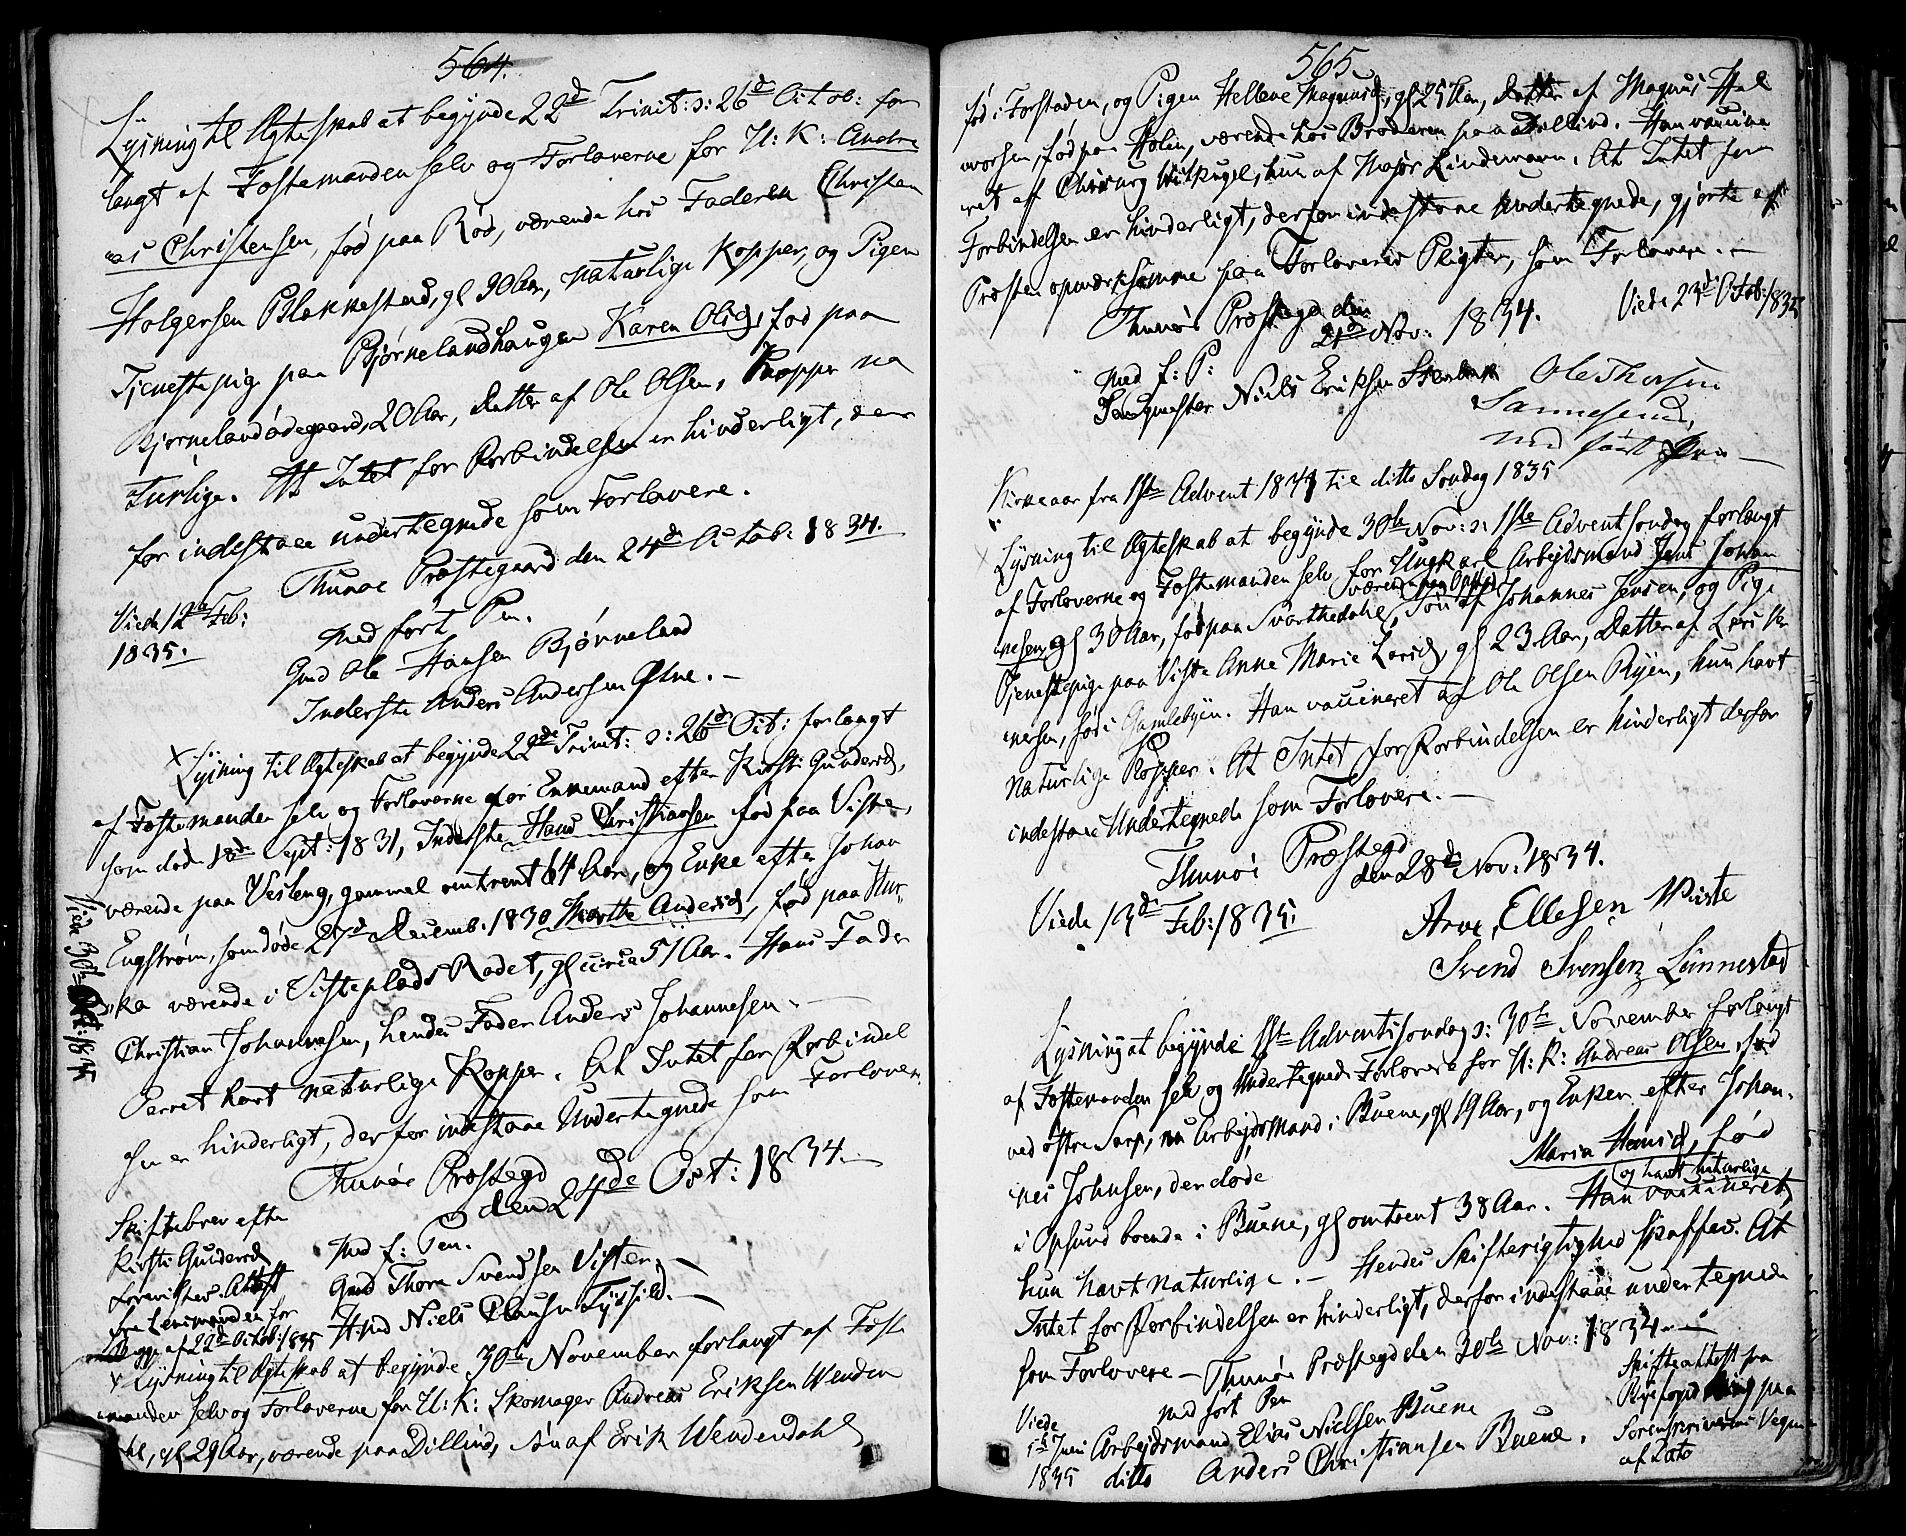 564.
Lysning til Ægteskab at begynde 22d Trinit: ɔ: 26d Octob: for
langt af Fæstemanden selv og Forloverne for U: K: Andre
as Christensen, fød paa Rød, værende hos Faderen Christen
Holgersen Blakkestad, gl 30 Aar, naturlige Kopper, og Pigen
Tjenestepige paa Bjørnelandhaugen Karen Olsd, fød paa
Bjørnelandødegaard, 20 Aar, Datter af Ole Olsen, Kopper na
turlige. At Intet for Forbindelsen er hinderligt, der
for indestaae undertegnede som Forlovere.
Thunøe Præstegaard den 24de Octob: 1834.
Viede 12te Feb:
1835.
med ført Pen.
Gmd Ole Hansen Bjørneland
Inderste Anders Andersen Ørne. –
x Lysning til Ægteskab at begynde 22de Trinit: ɔ: 26d Oct: forlangt
af Fæstemanden selv og Forloverne for Enkemand efter Kirsti Gundersd,
som døde 18de Sept: 1831, Inderste Hans Christiansen fød paa Viste,
værende paa Vesteng, gammel omtrent 64 Aar, og Enke efter Johan
Engström, som døde 27d Decemb. 1830 Marthe Andersd, fød paa Hur,,
værende i Visteplads Rødet, gl circa 51 Aar. Hans Fader
Christian Johannesen, hendes Fader Anders Johannesen. –
Parret havt naturlige Kopper. At Intet for Forbindel
sen er hinderligt, derfor indestaae Undertegnede som Forlover
Thunøe Præstegd
den 24de Oct: 1834. –
Viede 30te Oct: 1835
Skiftebrev efter
Kirsti Gundersd
forevistes Attest
fra Lensmanden for
Begge af 22d Octob: 1835
med f: Pen.
Gmd Thore Svendsen Visten. –
Hmd Niels Clausen –
x Lysning til Ægteskab at begynde 30te November forlangt af Fæste
manden selv og Forloverne for U: K: Skomager Andreas Eriksen Wenden
dahl, gl 29 Aar, værende paa Dilling, Søn af Erik Wendendahl
565
fød i Forstaden, og Pigen Hellene Magnusd, gl 25 Aar, Datter af Magnus Hal
vorsen, fød paa Holen, værende hos Broderen paa Dilling. Han vaccine
ret af Chirurg Hitkugel, hun af Major Lindemann. At Intet for
Forbindelsen er hinderligt, derfor indestaae Undertegnede, gjorte af
Præsten opmærksomme paa Forloveres Pligter, som Forlovere. –
Thunøe Præstegd den
21d Nov: 1834.
Viede 23d Feb: 1835
med f: P:
Niels Eriksen
Ole Thorsen
Sannesund,
med ført Pen –
Kirkeaar fra 1ste Advent 1834 til ditto Søndag 1835
x Lysning til Ægteskab at begynde 30te Nov: ɔ: 1ste Advent søndag forlangt
af Forloverne og Fæstemanden selv for Ungkarl Arbejdsmand Jens Johan
nesen, gl 30 Aar, fød paa Svarthedahl, værende paa Opsund, Søn af Johannes Jensen, og Pige
Tjenestepige paa Viste Anne Marie Larsd, gl 23 Aar, Datter af Lars
nersen, fød i Gamlebyen. Han vaccineret af Ole Olsen Ryen, hun havt
naturlige Kopper. At Intet for Forbindelsen er hinderligt derfor
indestaae Undertegnede som Forlovere. –
Thunøe Præstegd
den 28d Nov: 1834.
Viede 13de Feb: 1835.
Arne Ellesen Wiste
Svend Svensen Lunnestad
Lysning at begynde 1ste Advents søndag ɔ: 30te November forlangt
af Fæstemanden selv og Undertegnede Forlovere for U: K: Andreas Olsen fød
ved østre Sarp, nu Arbejdsmand i Buene, gl 19 Aar, og Enken efter Johan-
nes Johnsen, der døde
Maria Hansd, fød
i Opsund boende i Buene, gl omtrent 38 Aar. Han vaccineret, og havt naturlige
hun havt naturlige. – Hendes Skifterigtighed skaffes. At
Intet for Forbindelsen er hinderligt, derfor indestaae undertegnede
som Forlovere – Thunøe Præstegd den 30te Nov: 1834. –
Viede
1ste Juni
1835
med ført Pen
Arbejdsmand Elias Nielsen Buene
ditto Anders Christiansen Buene.
Skifteattest fra
paa
Sorenskriverens Vegne
af Dato